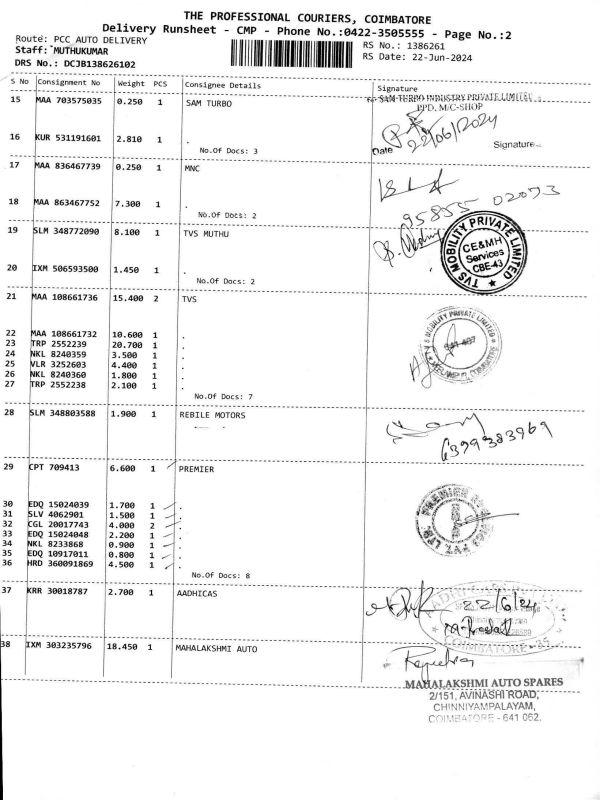 THE PROFESSIONAL COURIERS, COIMBATORE
Delivery Runsheet - CMP - Phone No.:0422-3505555 - Page No.:2
Route: PCC AUTO DELIVERY
Staff: MUTHUKUMAR
DRS No.: DCJB138626102
RS No.: 1386261
RS Date: 22-Jun-2024
S No Consignment No Weight PCS Consignee Details Signature
15 MAA 703575035 0.250 1 SAM TURBO
SAM TURBO INDUSTRY PRIVATE LIMITED
PPD, M/C-SHOP
22/06/2024
Date Signature
16 KUR 531191601 2.810 1 .
No.Of Docs: 3
17 MAA 836467739 0.250 1 MNC
18 MAA 863467752 7.300 1 .
No.Of Docs: 2
95855 02073
19 SLM 348772090 8.100 1 TVS MUTHU
TVS MOBILITY PRIVATE LIMITED
CE&MH
Services
CBE-43
20 IXM 506593500 1.450 1 .
No.Of Docs: 2
21 MAA 108661736 15.400 2 TVS
MOBILITY PRIVATE LIMITED
COIMBATORE
22 MAA 108661732 10.600 1 .
23 TRP 2552239 20.700 1 .
24 NKL 8240359 3.500 1 .
25 VLR 3252603 4.400 1 .
26 NKL 8240360 1.800 1 .
27 TRP 2552238 2.100 1 .
No.Of Docs: 7
28 SLM 348803588 1.900 1 REBILE MOTORS
6399383969
29 CPT 709413 6.600 1 PREMIER
PREMIER
PVT. LTD.
30 EDQ 15024039 1.700 1 .
31 SLV 4062901 1.500 1 .
32 CGL 20017743 4.000 2 .
33 EDQ 15024048 2.200 1 .
34 NKL 8233868 0.900 1 .
35 EDQ 10917011 0.800 1 .
36 HRD 360091869 4.500 1 .
No.Of Docs: 8
37 KRR 30018787 2.700 1 AADHICAS
22/6/24
COIMBATORE - 35
38 IXM 303235796 18.450 1 MAHALAKSHMI AUTO
MAHALAKSHMI AUTO SPARES
2/151, AVINASHI ROAD,
CHINNIYAMPALAYAM,
COIMBATORE - 641 062.